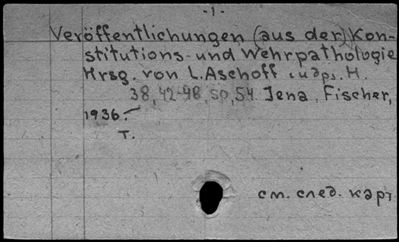 -1-
Veröffentlichungen (aus der) Kon-
stitutions- und Wehrpathologie
Hrsg. von L. Aschoff и др. H.
38, 42-48, 50, 54. Jena, Fischer,
1936.-
T.
см. след. карт.